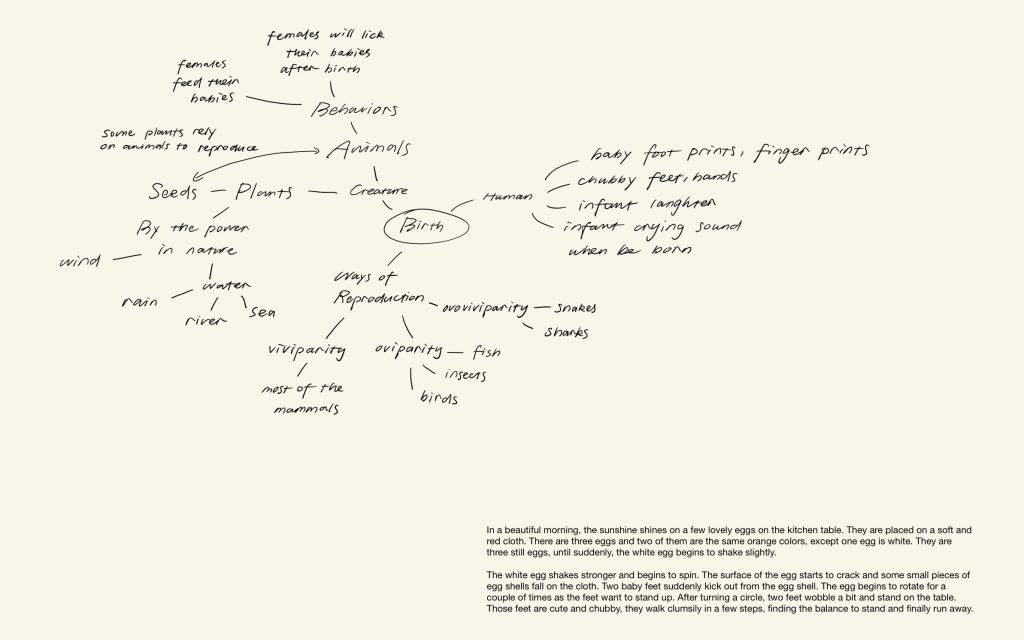 females will lick
their babies
after birth
females
feed their
babies
Behaviors
some plants rely
on animals to reproduce
Animals
Seeds
Plants
Creature
Human
Birth
baby foot prints, finger prints
chubby feet, hands
infant laughter
infant crying sound
when be born
By the power
in nature
wind
water
rain
river
sea
ways of
Reproduction
ovoviviparity
snakes
sharks
viviparity
most of the
mammals
oviparity
fish
insects
birds
In a beautiful morning, the sunshine shines on a few lovely eggs on the kitchen table. They are placed on a soft and
red cloth. There are three eggs and two of them are the same orange colors, except one egg is white. They are
three still eggs, until suddenly, the white egg begins to shake slightly.
The white egg shakes stronger and begins to spin. The surface of the egg starts to crack and some small pieces of
egg shells fall on the cloth. Two baby feet suddenly kick out from the egg shell. The egg begins to rotate for a
couple of times as the feet want to stand up. After turning a circle, two feet wobble a bit and stand on the table.
Those feet are cute and chubby, they walk clumsily in a few steps, finding the balance to stand and finally run away.